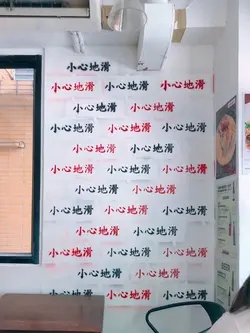 小心地滑
小心地滑 小心地滑 小心地滑
小心地滑 小心地滑
小心地滑 小心地滑 小心地滑
小心地滑 小心地滑
小心地滑 小心地滑 小心地滑
小心地滑 小心地滑
小心地滑 小心地滑 小心地滑
小心地滑 小心地滑
小心地滑 小心地滑 小心地滑
小心地滑 小心地滑
小心地滑 小心地滑 小心地滑